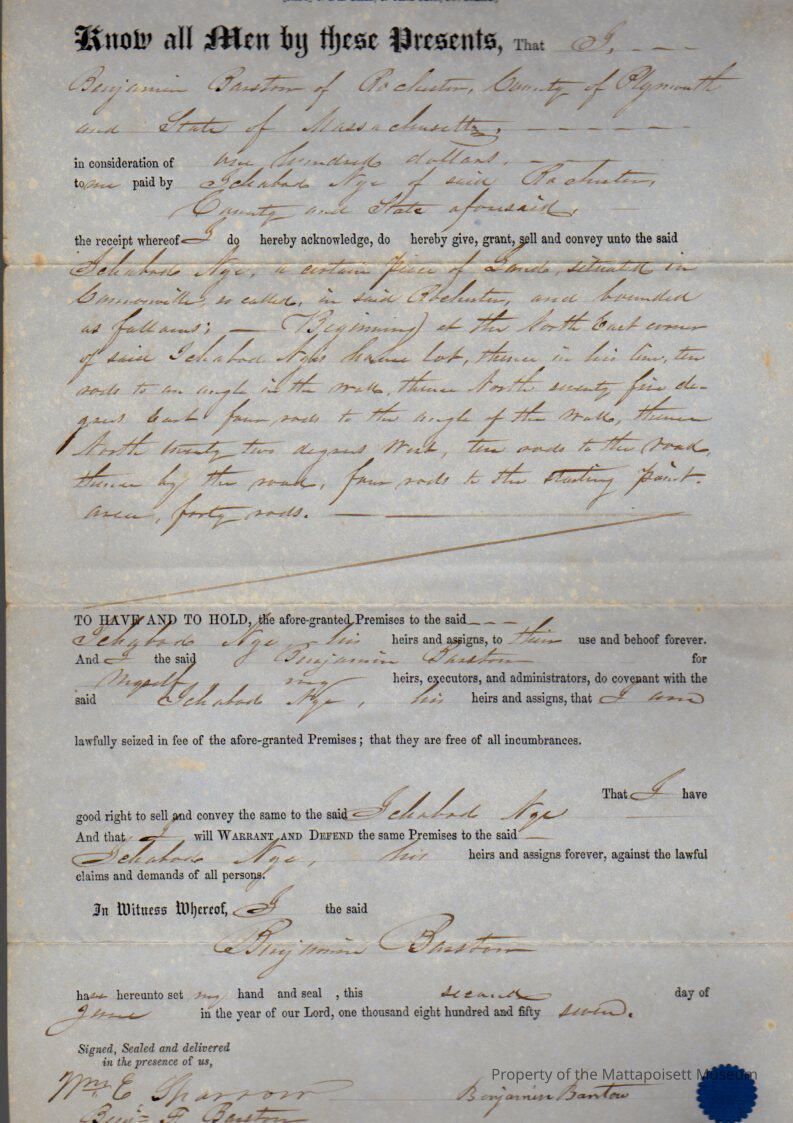 Know all Men by these Presents, That I, - - -
Benjamin Barstow of Rochester, County of Plymouth
and State of Massachusetts, - - - - - - -
in consideration of one hundred dollars. - -
to me paid by Ichabod Nye of said Rochester,
County and State aforesaid, -
the receipt whereof I do hereby acknowledge, do hereby give, grant, sell and convey unto the said
Ichabod Nye, a certain piece of Land, situated in
Cannonville, so called, in said Rochester, and bounded
as follows; — (Beginning) at the North East corner
of said Ichabod Nye's home lot, thence in his line, ten
rods to an angle in the wall, thence North seventy five de-
grees East four rods to the angle of the wall, thence
North twenty two degrees West, ten rods to the road,
thence by the road, four rods to the starting point.
area, forty rods. —
TO HAVE AND TO HOLD, the afore-granted Premises to the said - - -
Ichabod Nye, his heirs and assigns, to their use and behoof forever.
And I the said Benjamin Barstow for
myself, my heirs, executors, and administrators, do covenant with the
said Ichabod Nye, his heirs and assigns, that I am
lawfully seized in fee of the afore-granted Premises; that they are free of all incumbrances.
That I have
good right to sell and convey the same to the said Ichabod Nye
And that I will WARRANT AND DEFEND the same Premises to the said —
Ichabod Nye, his heirs and assigns forever, against the lawful
claims and demands of all persons.
In Witness Whereof, I the said
Benjamin Barstow
have hereunto set my hand and seal , this second day of
June in the year of our Lord, one thousand eight hundred and fifty seven.
Signed, Sealed and delivered
in the presence of us,
Property of the Mattapoisett Museum
Wm. E. Sparrow Benjamin Barstow
Benj. F. Barstow